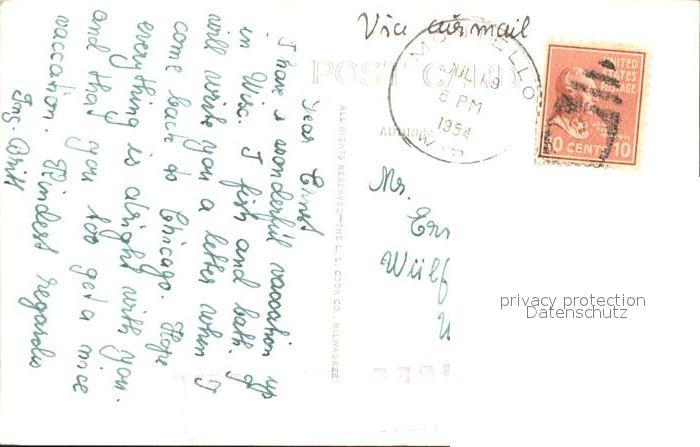 Via airmail
POST CARD
MONTICELLO
JUL 19
8 PM
1954
WIS
UNITED
STATES
POSTAGE
10 CENTS 10
ADDRESS
Dear Ernst
I have a wonderful vaccation up
in Wisc. I fish and bath. I
will write you a letter when I
come back to Chicago. Hope
everything is alright with you.
and that you too get a nice
vaccation. Kindest regards
ALL RIGHTS RESERVED—THE L. L. COOK CO., MILWAUKEE
Mr.
Ern
Wülf
privacy protection
Datenschutz